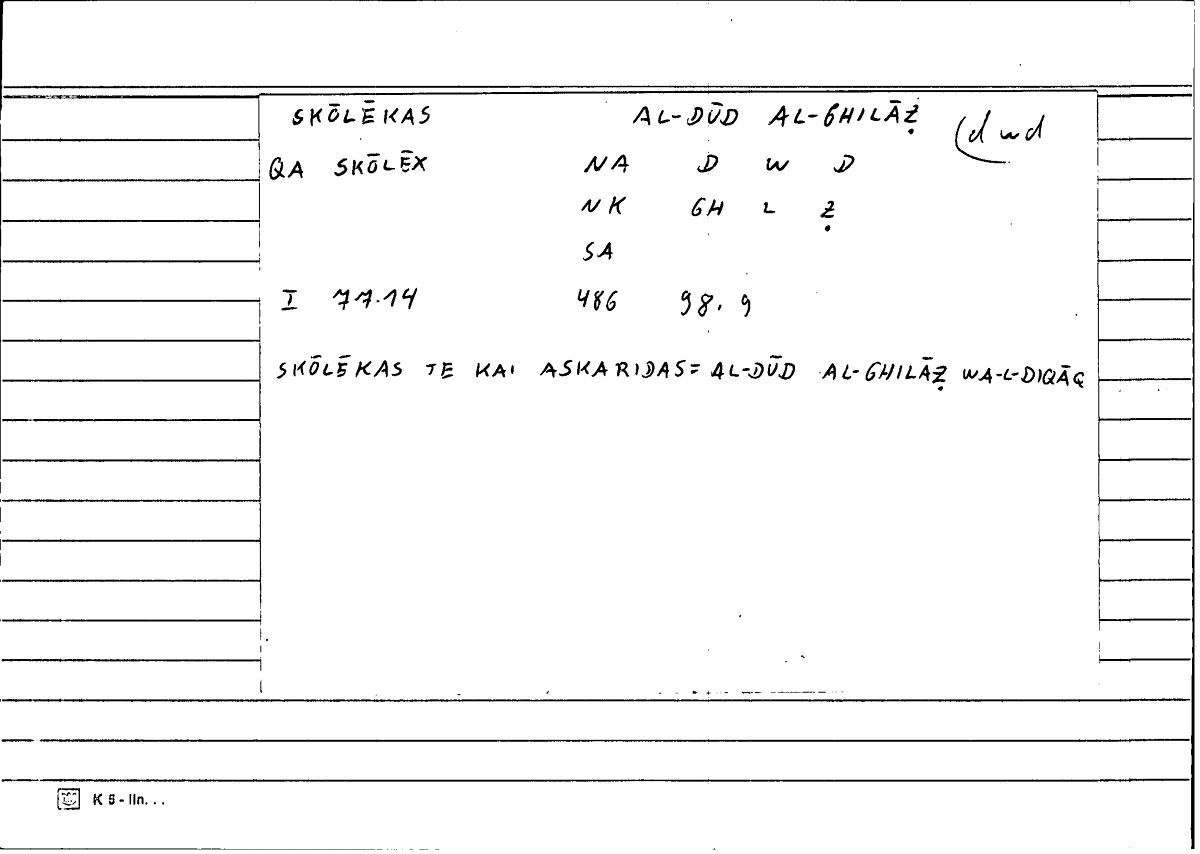 SKŌLĒKAS AL-DŪD AL-GHILĀẒ (dwd
QA SKŌLĒX NA D W D
NK GH L Ẓ
SA
I 77.14 486 98.9
SKŌLĒKAS TE KAI ASKARIDAS = AL-DŪD AL-GHILĀẒ WA-L-DIQĀQ
K 5 - lin...